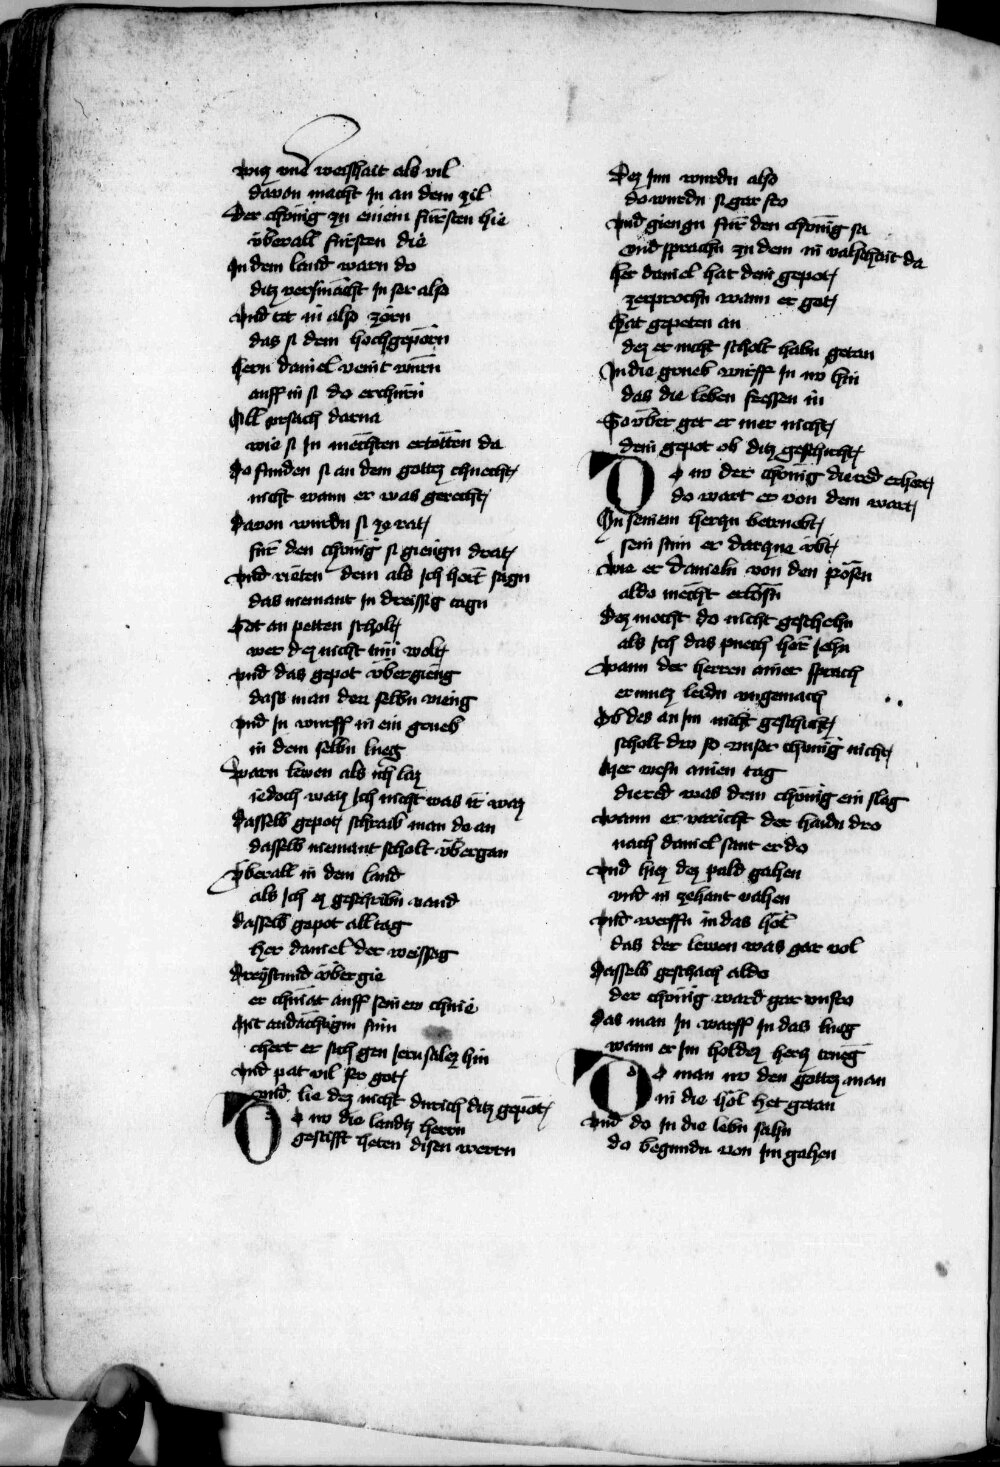 witz vnd weishait als vil
davon macht in an dem zil
Der chünig zu einem fürsten hie
überall fürsten die
In dem land warn do
ditz versmächt in ser also
Vnd tet in also zorn
das si dem hochgeporn
hern daniel veint wurn
auff in si do erchurn
All vrsach darna
wie si in mechten ertötten da
do funden si an dem gottez chnecht
nicht wann er was gerecht
davon wurdn si ze rat
für den chünig si giengn drat
Vnd rieten dem als ich hort sagn
das niemant in dreissig tagn
Got an petten scholt
wer dez nicht tun wolt
vnd das gepot übergieng
dass man den selbn vieng
vnd in wurff in ein grueb
in dem selbn lueg
Warn lewen als ich laz
iedoch waiz ich nicht was ir waz
dasselb gepot schraib man do an
dasselb niemant scholt übergan
überall in dem land
als ich ez geschribn vand
dasselb gepot all tag
her daniel der weissag
dreystund übergie
er chniat auff seinew chnie
Mit andächtigm sinn
chert er sich gen Jerusalez hin
Vnd pat vil ser got
vnd lie dez nicht durich ditz gepot
Do nw die landtz herrn
gestifft heten disen werrn
Dez inn wurdn also
do wurdn si gar fro
Vnd giengn für den chünig sa
vnd sprachn zu dem in valschait da
her daniel hat dein gepot
zerprochn wann er got
Hat gepeten an
dez er nicht scholt habn getan
In die grueb wirff in nw hin
das die leben fressen in
So über get er mer nicht
dein gepot ob ditz geschicht
Do nw der chünig die red erhort
do wart er von dem wort
In seinem herczn betruebt
sein sinn er darzue übt
Wie er danieln von den pösen
aldo mecht erlösn
Dez mocht do nicht geschehn
als ich das puech hör iehn
Wann der herren ainer sprach
er muez leidn vngemach
Ob des an im nicht geschicht
scholt dw so vnser chünig nicht
Mer wesn ainen tag
die red was dem chünig ein slag
Wann er voricht der haidn dro
nach daniel sant er do
Vnd hiez dez pald gahen
vnd in zehant vahen
Vnd werffn in das hol
das der lewen was gar vol
dasselb geschach aldo
der chünig ward gar vnfro
das man in warff in das lueg
wann er im holdez hertz trueg
Do man nw den gottez man
in die hol het getan
Vnd do in die lebn sahn
do begundn von im gahen